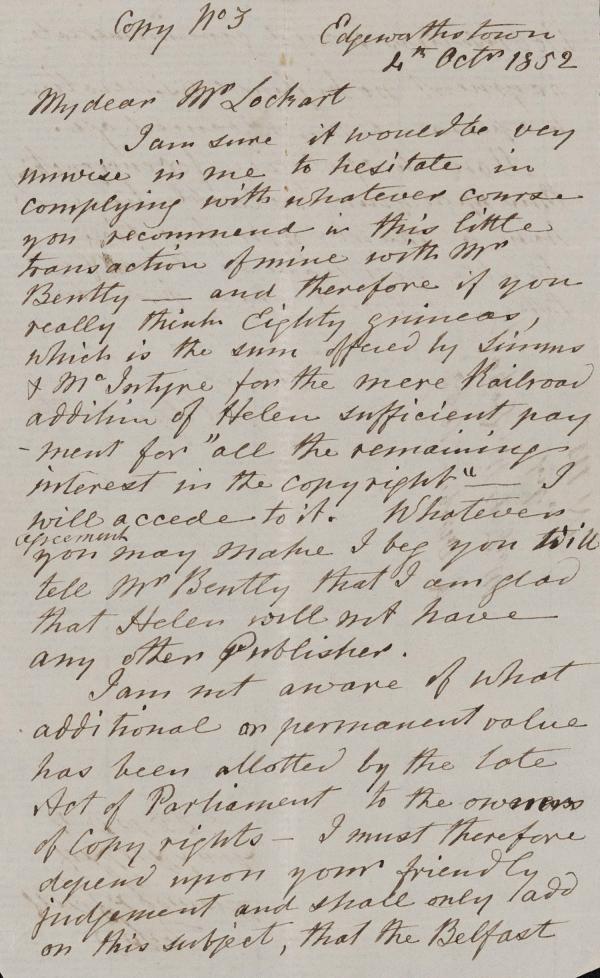 Copy No 3
Edgeworthstown
4th Octr 1852
My dear Mr Lockart
I am sure it would be very
unwise in me to hesitate in
complying with whatever course
you recommend in this little
transaction of mine with Mr
Bently — and therefore if you
really think Eighty guineas,
which is the sum offered by Simms
& McIntyre for the mere Railroad
addition of Helen sufficient pay
-ment for "all the remaining
interest in the copyright" — I
will accede to it. Whatever
agreement
you may make I beg you will
tell Mr Bently that I am glad
that Helen will not have
any other Publisher.
I am not aware of what
additional or permanent value
has been allotted by the late
Act of Parliament to the owners
of Copy rights — I must therefore
depend upon your friendly
judgement and shall only add
on this subject, that the Belfast